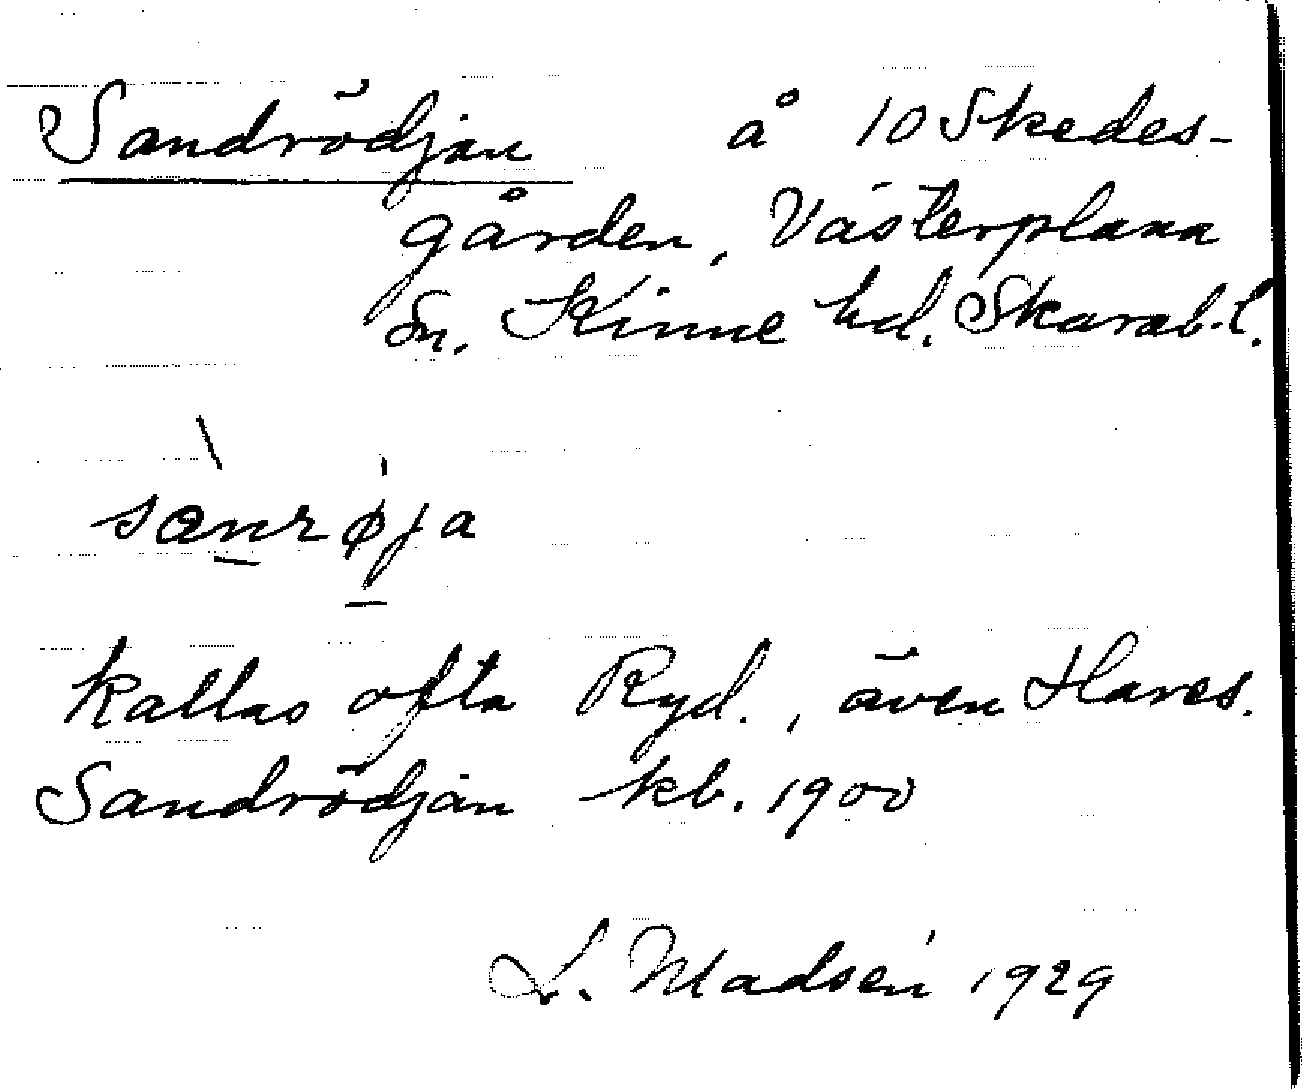 Sandrödjan å 10 Skedes-
gården, Västerplana
Sn. Kinne hd. Skarab.l.
sænrøja
kallas ofta Ryd., även Hares.
Sandrödjan kb. 1900
L. Madsén 1929